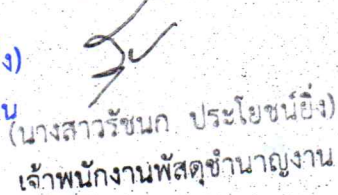 ง)
น
(นางสาวรัชนก ประโยชน์ยิ่ง)
เจ้าพนักงานพัสดุชำนาญงาน